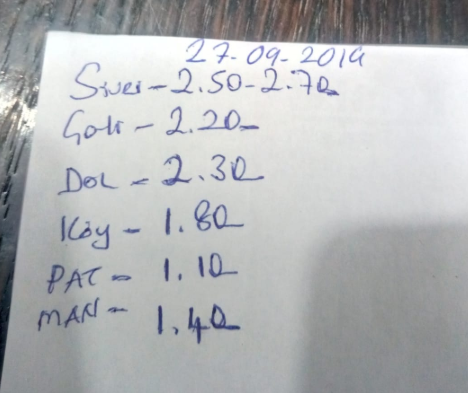 27-09-2019
Sivri-2.50-2.70
Çarlı-2.20
DOL-2.30
Köy-1.80
PAT-1.10
MAN-1.40